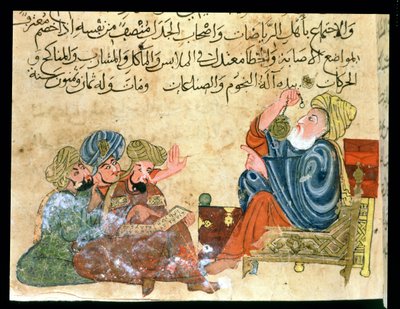 والاجتماع باهل الرياضات واصحاب الجدل منصف من نفسه اذا خصم
المواضع الاصابة والخطا معتدل في الملابس والمآكل والمشارب والمناكح و
الحركات بيده آلة النجوم ومات وله ثمان وستون سنة